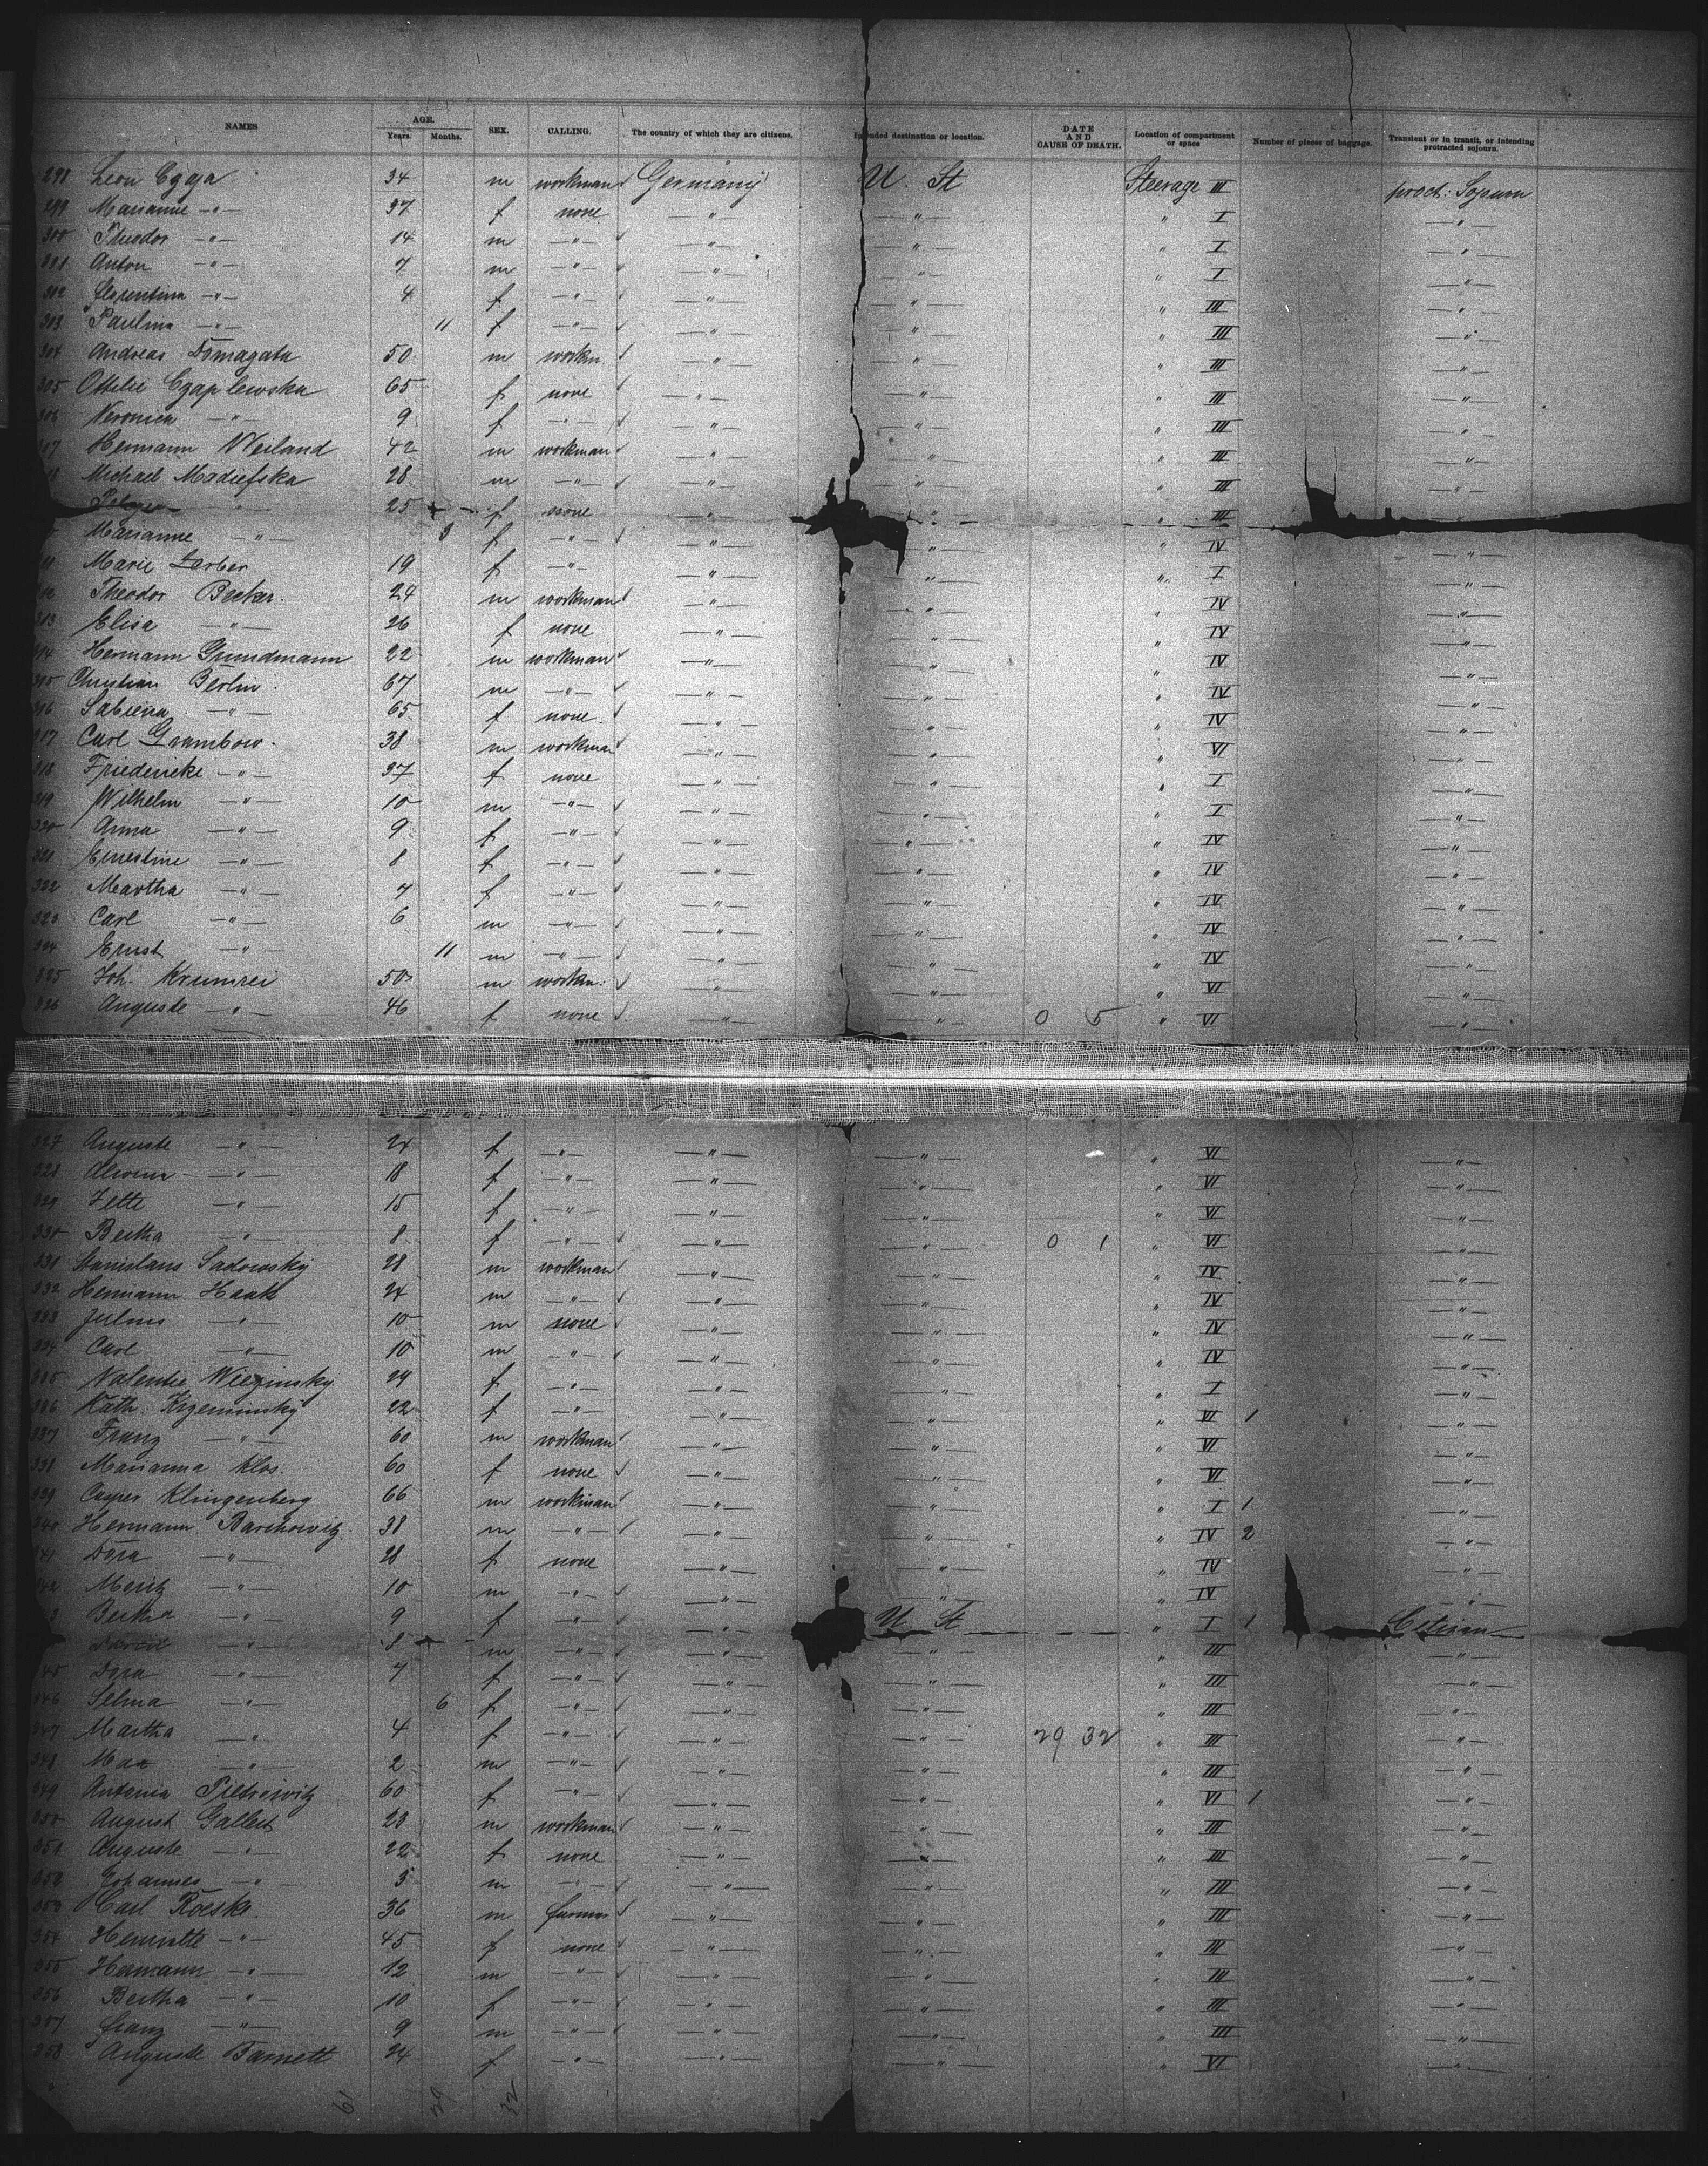 NAMES AGE. Years. Months. SEX. CALLING. The country of which they are citizens. Intended destination or location. DATE AND CAUSE OF DEATH. Location of compartment or space Number of pieces of baggage. Transient or in transit, or intending protracted sojourn.
298 Leon 34 m workman Germany U. St Steerage III
299 Marianne -"- 37 f none -"- -"- " I -"-
300 Theodor -"- 14 m -"- -"- -"- " I -"-
301 Anton -"- 7 m -"- -"- -"- " I -"-
302 Florentina -"- 4 f -"- -"- -"- " III -"-
303 Paulina -"- 11 f -"- -"- -"- " III -"-
304 Andreas Domagata 50 m workm. -"- -"- " III -"-
305 Ottilie Czaplewska 65 f none -"- -"- " III -"-
306 Veronica -"- 9 f -"- -"- -"- " III -"-
Hermann Weiland 42 m workman -"- -"- " III -"-
Michael 28 m -"- -"- -"- " III -"-
-"- 25 f none -"- -"- " III
Marianne -"- 3 f -"- -"- -"- " IV -"-
Marie 19 f -"- -"- -"- " I -"-
Theodor Becker. 24 m workman -"- -"- " IV -"-
313 Elisa -"- 26 f none -"- -"- " IV -"-
314 Hermann Grundmann 22 m workman -"- -"- " IV -"-
315 Christian Berlin. 67 m -"- -"- -"- " IV -"-
316 Sabiena -"- 65 f none -"- -"- " IV -"-
317 Carl Grambow. 38 m workman -"- -"- " VI -"-
318 Friedericke -"- 37 f none -"- -"- " I -"-
319 Wilhelm -"- 10 m -"- -"- -"- " I -"-
320 Anna -"- 9 f -"- -"- -"- " IV -"-
321 Ernestine -"- 8 f -"- -"- -"- " IV -"-
322 Martha -"- 7 f -"- -"- -"- " IV -"-
323 Carl -"- 6 m -"- -"- -"- " IV -"-
324 Ernst -"- 11 m -"- -"- -"- " IV -"-
325 Joh. Krumrei 50 m workm. -"- -"- " VI -"-
326 Auguste -"- 46 f none -"- -"- 0 5 " VI -"-
327 Auguste -"- 24 f -"- -"- -"- " VI -"-
328 -"- 18 f -"- -"- -"- " VI -"-
329 Jette -"- 15 f -"- -"- -"- " VI -"-
330 Bertha -"- 8 f -"- -"- -"- 0 1 " VI -"-
331 Stanislaus Sadowsky 28 m workman -"- -"- " IV -"-
332 Hermann Haak 24 m -"- -"- -"- " IV -"-
333 Julius -"- 10 m none -"- -"- " IV -"-
334 Carl -"- 10 m -"- -"- -"- " IV -"-
335 24 f -"- -"- -"- " I -"-
336 Kath. Krzeminsky 22 f -"- -"- -"- " VI 1 -"-
337 Franz -"- 60 m workman -"- -"- " VI -"-
338 Marianna Klos. 60 f none -"- -"- " VI -"-
339 Casper Klingenberg 66 m workman -"- -"- " I 1 -"-
340 Hermann 38 m -"- -"- -"- " IV 2 -"-
341 Dora -"- 28 f none -"- -"- " IV -"-
342 Moritz -"- 10 m -"- -"- -"- " IV -"-
Bertha -"- 9 f -"- -"- U. St " I 1
-"- 8 m -"- -"- -"- " III -"-
345 Dora -"- 7 f -"- -"- -"- " III -"-
346 Selma -"- 6 f -"- -"- -"- " III -"-
347 Martha -"- 4 f -"- -"- -"- 29 32 " III -"-
348 Max -"- 2 m -"- -"- -"- " III -"-
349 Antonia 60 f -"- -"- -"- " VI 1 -"-
350 August Gallert 23 m workman -"- -"- " III -"-
351 Auguste -"- 22 f none -"- -"- " III -"-
352 Johannes -"- 3 m -"- -"- -"- " III -"-
353 Carl Roeske. 36 m farmer -"- -"- " III -"-
354 Henriette -"- 45 f none -"- -"- " III -"-
355 Hermann -"- 12 m -"- -"- -"- " III -"-
356 Bertha -"- 10 f -"- -"- -"- " III -"-
357 Franz -"- 9 m -"- -"- -"- " III -"-
358 Auguste Barnett 24 f -"- -"- -"- " VI -"-
61 29 32